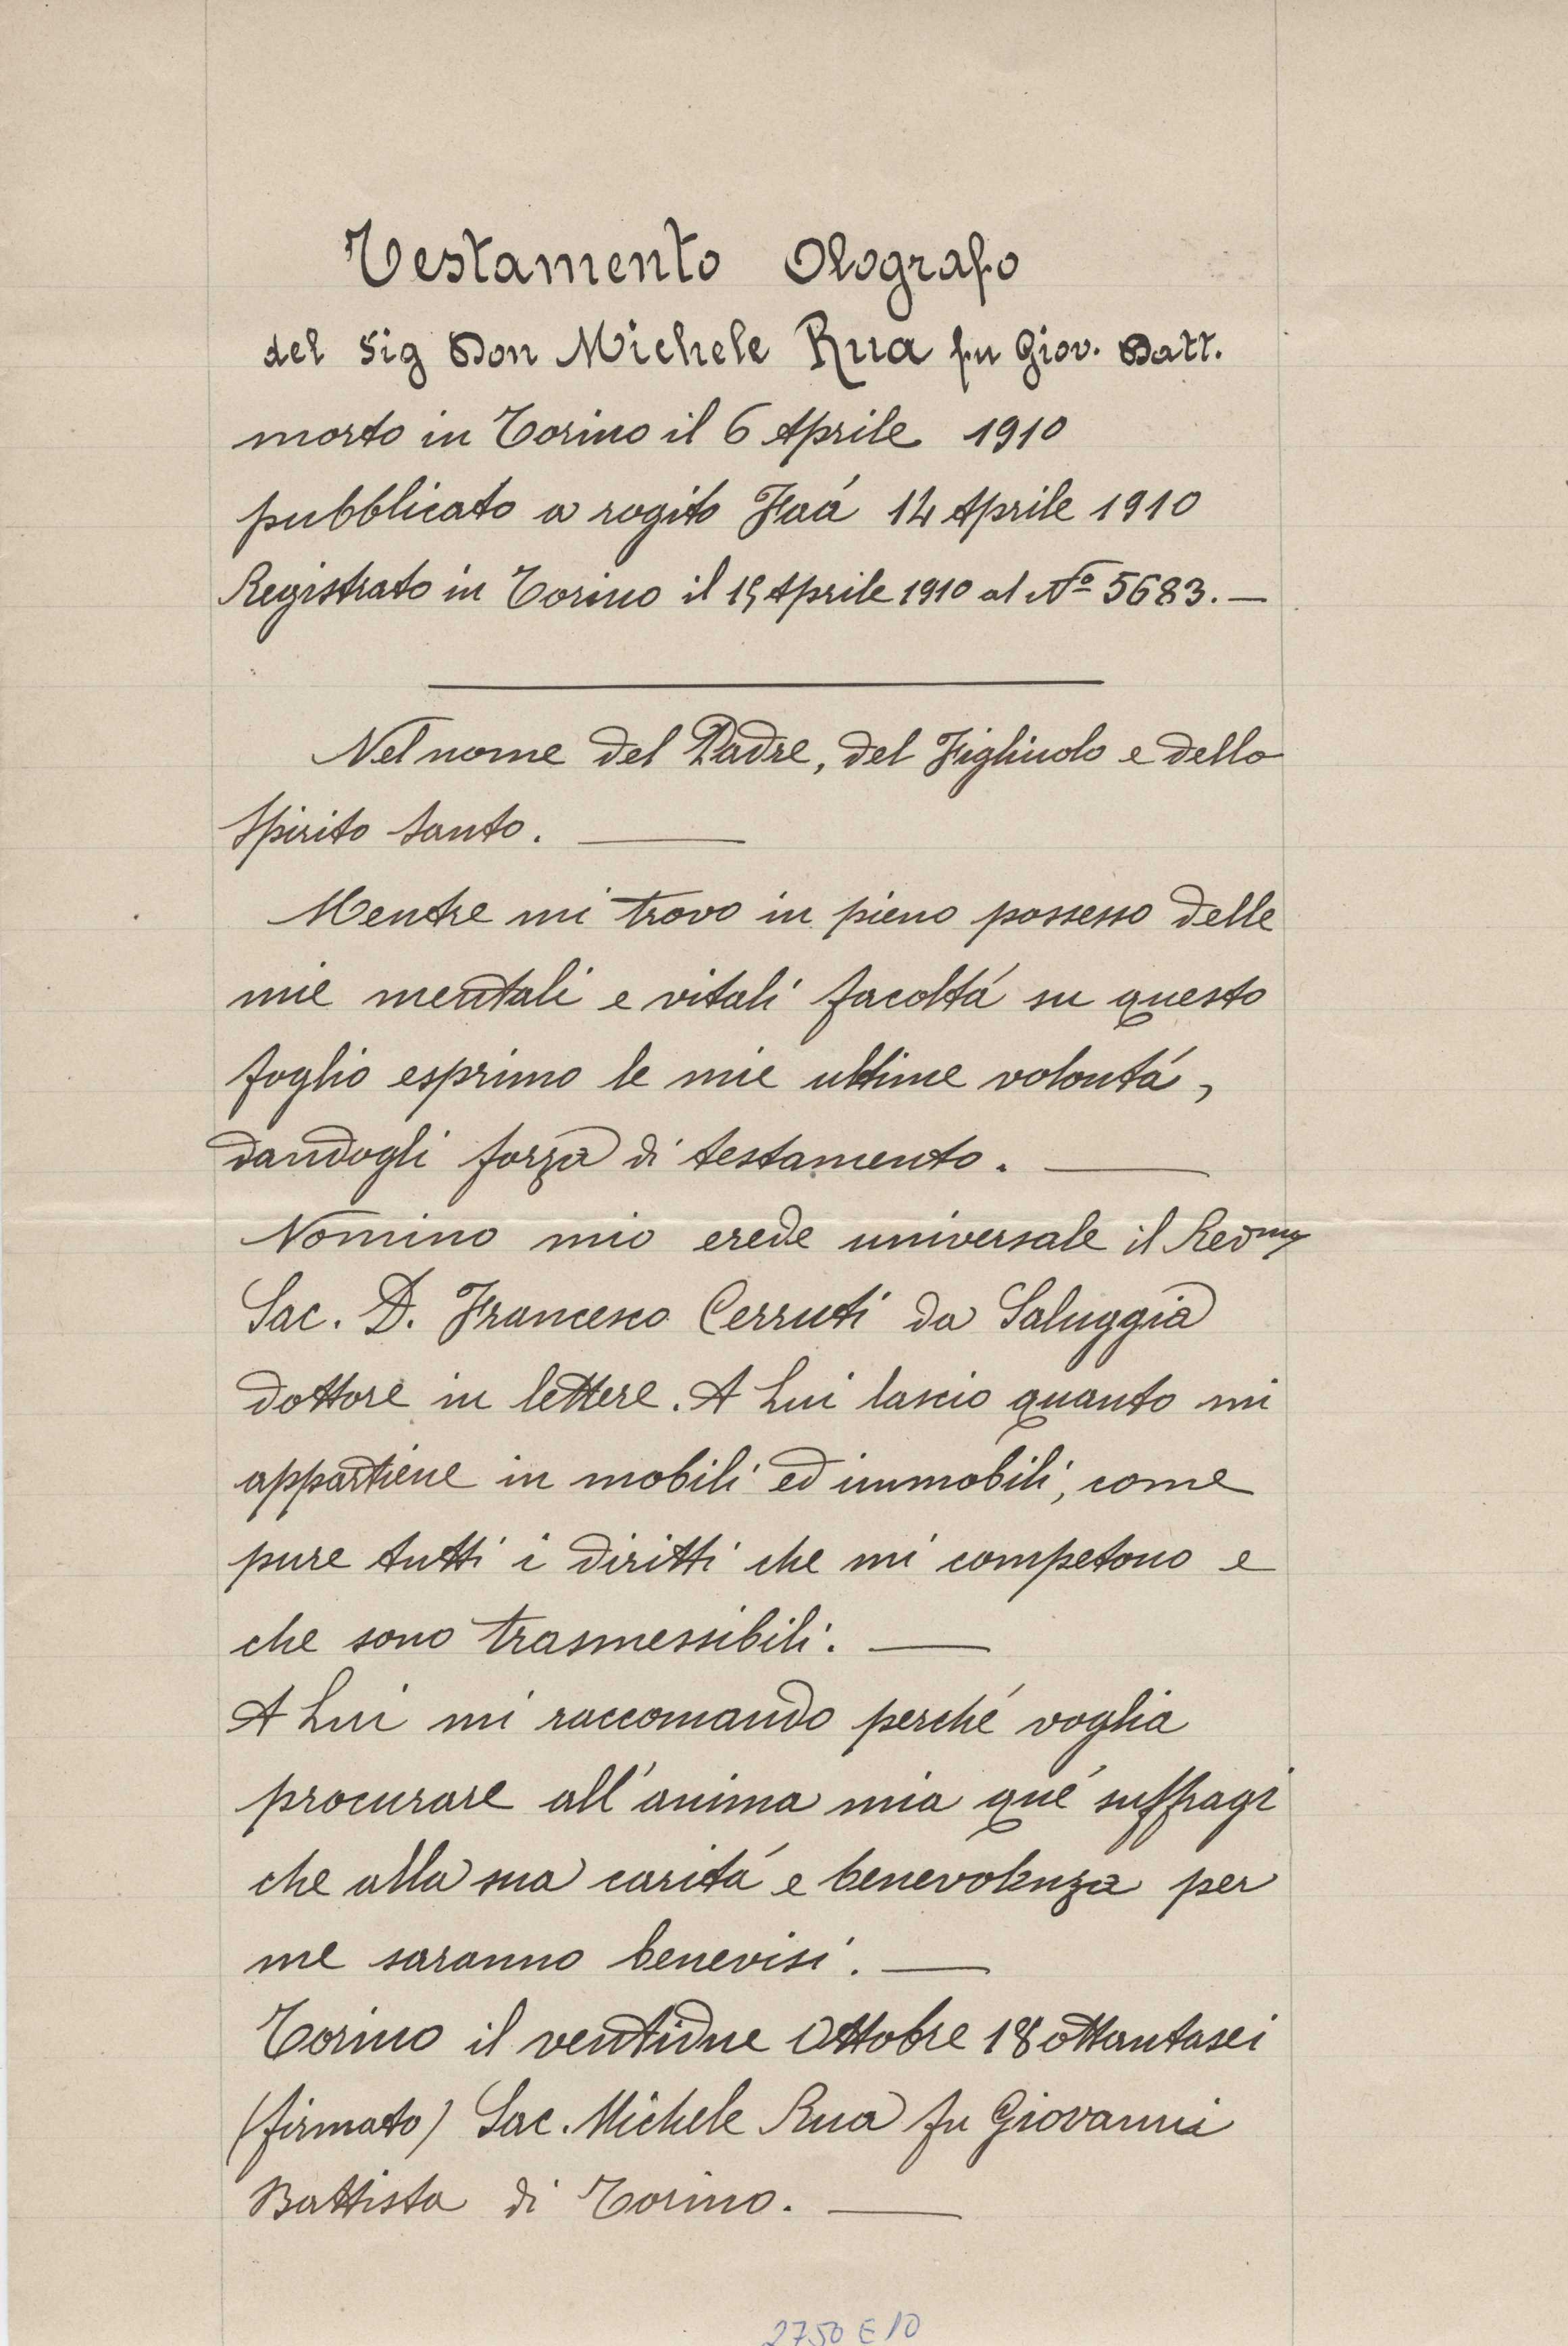 Testamento Olografo
del Sig Don Michele Rua fu Giov. Batt.
morto in Torino il 6 Aprile 1910
pubblicato a rogito Faá 14 Aprile 1910
Registrato in Torino il 15 Aprile 1910 al Nº 5683. —
Nel nome del Padre, del Figliuolo e dello
Spirito Santo. —
Mentre mi trovo in pieno possesso delle
mie mentali e vitali facoltá su questo
foglio esprimo le mie ultime volontá,
dandogli forza di testamento. —
Nomino mio erede universale il Revmo
Sac. D. Francesco Cerruti da Saluggia
dottore in lettere. A Lui lascio quanto mi
appartiene in mobili ed immobili, come
pure tutti i diritti che mi competono e
che sono trasmessibili. —
A Lui mi raccomando perché voglia
procurare all'anima mia que' suffragi
che alla sua caritá e benevolenza per
me saranno benevisi. —
Torino il ventidue Ottobre 18ottantasei
(firmato) Sac. Michele Rua fu Giovanni
Battista di Torino. —
2750 E 10